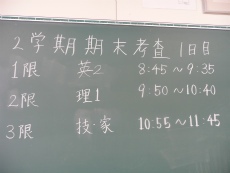 2学期期末考査 1日目
1限 英2 8:45～9:35
2限 理1 9:50～10:40
3限 技・家 10:55～11:45